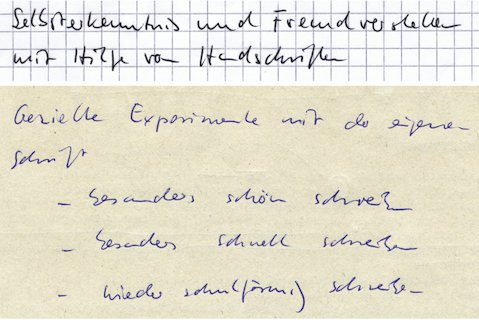 Selbsterkenntnis und Fremdverstehen
mit Hilfe von Handschriften
Gezielte Experimente mit der eigenen
Schrift
- besonders schön schreiben
- besonders schnell schreiben
- wieder schul(förmi) schreiben